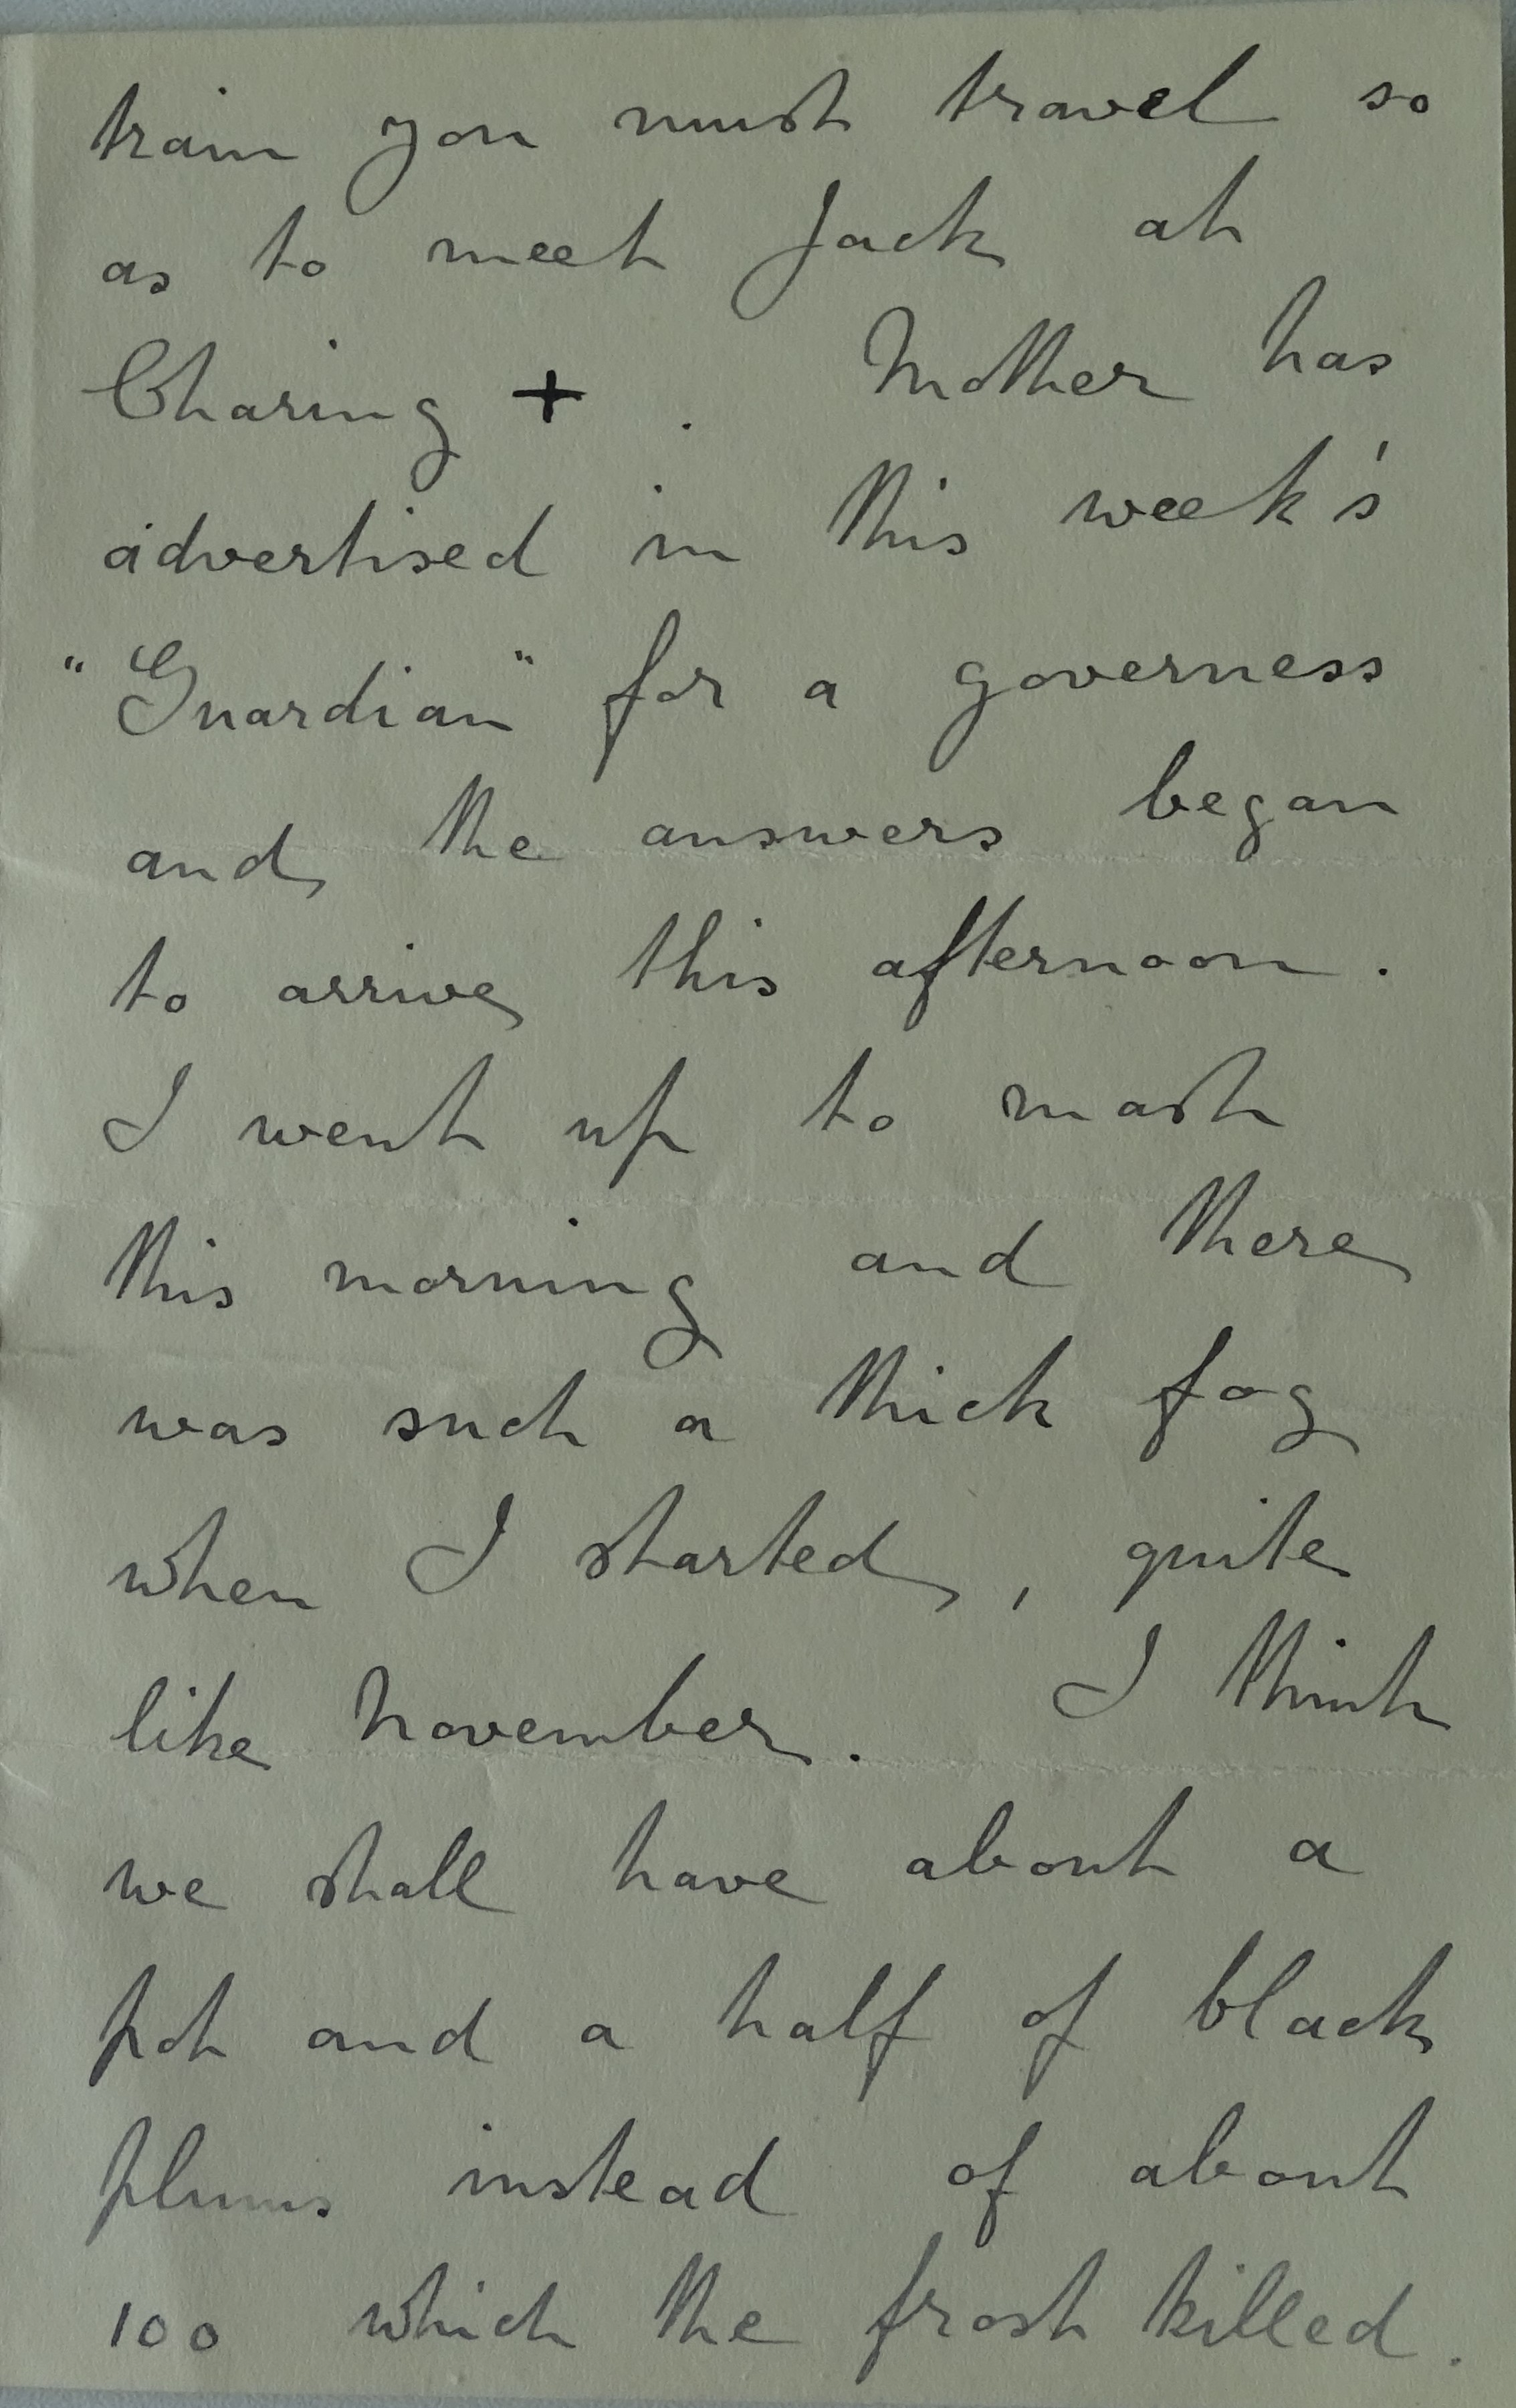 train you must travel so
as to meet Jack at
Charing + . Mother has
advertised in this week's
"Guardian" for a governess
and the answers began
to arrive this afternoon.
I went up to mast
this morning and there
was such a thick fog
when I started, quite
like November. I think
we shall have about a
pot and a half of black
plums instead of about
100 which the frost killed.